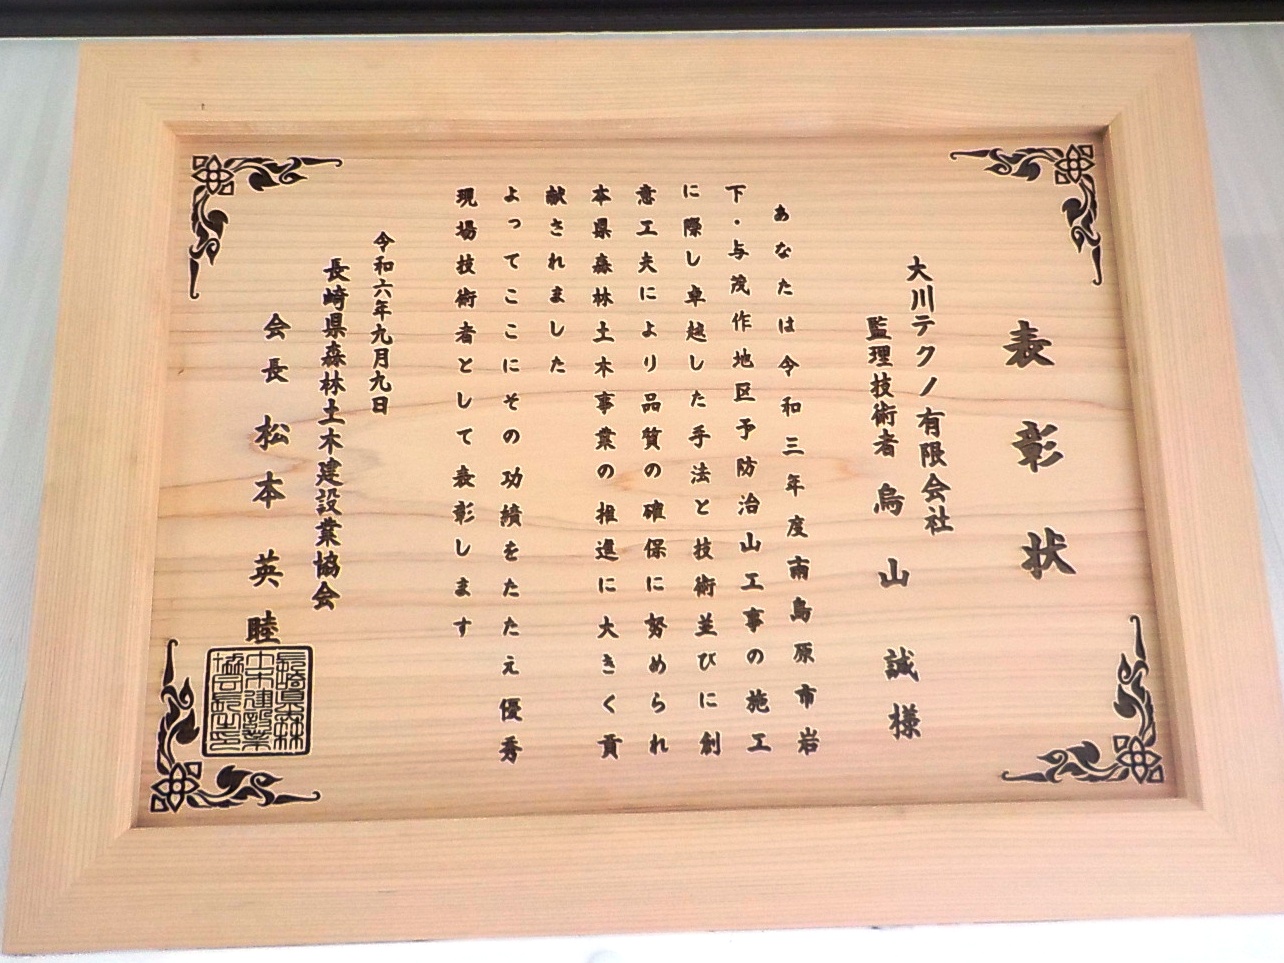 表彰状
大川テクノ有限会社
監理技術者 烏山 誠 様
あなたは令和三年度南島原市岩
下・与茂作地区予防治山工事の施工
に際し卓越した手法と技術並びに創
意工夫により品質の確保に努められ
本県森林土木事業の推進に大きく貢
献されました
よってここにその功績をたたえ優秀
現場技術者として表彰します
令和六年九月九日
長崎県森林土木建設業協会
会長 松本 英睦
長崎県森林
土木建設業
協会長之印